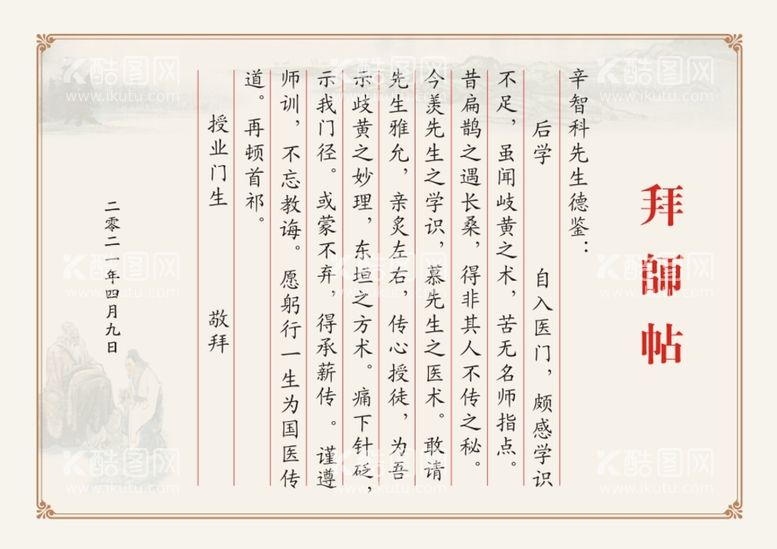 拜師帖
辛智科先生德鉴：
后学 自入医门，颇感学识
不足，虽闻岐黄之术，苦无名师指点。
昔扁鹊之遇长桑，得非其人不传之秘。
今羡先生之学识，慕先生之医术。敢请
先生雅允，亲炙左右，传心授徒，为吾
示歧黄之妙理，东垣之方术。痛下针砭，
示我门径。或蒙不弃，得承薪传。谨遵
师训，不忘教诲。愿躬行一生为国医传
道。再顿首祁。
授业门生 敬拜
二零二一年四月九日
酷图网
www.ikutu.com